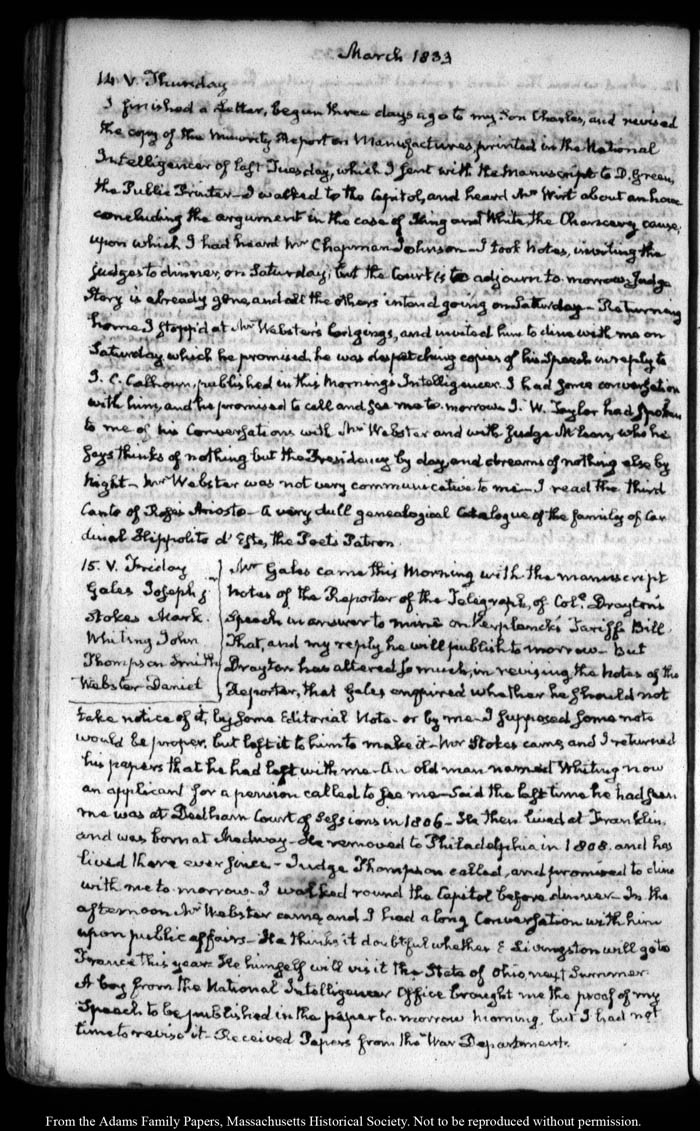 March 1833
14. V. Thursday
I finished a Letter, begun three days ago to my Son Charles, and revised
the copy of the Minority Report on Manufactures, printed in the National
Intelligencer of last Tuesday, which I sent with the Manuscript to D. Green,
the Public Printer. I walked to the Capitol, and heard Mr Wirt about an hour
concluding the argument in the case of King and White the Chancery cause,
upon which I had heard Mr Chapman Johnson. I took Notes, inviting the
Judges to dinner, on Saturday; but the Court is to adjourn to-morrow, Judge
Story is already gone, and all the others intend going on Saturday. Returning
home I stopp'd at Mr Webster's lodgings, and invited him to dine with me on
Saturday, which he promised. he was despatching copies of his Speech in reply to
J. C. Calhoun, published in this Morning's Intelligencer. I had some conversation
with him, and he promised to call and see me to-morrow. J. W. Taylor had spoken
to me of his Conversations with Mr Webster and with Judge McLean, who he
says thinks of nothing but the Presidency by day, and dreams of nothing else by
Night. Mr Webster was not very communicative to me. I read the third
Canto of Rose's Ariosto. A very dull genealogical Catalogue of the family of Car
dinal Hippolito d'Este, the Poet's Patron.
15. V. Friday
Gales Joseph j
Stokes Mark.
Whiting John
Thompson Smith
Webster Daniel
Mr Gales came this Morning with the manuscript
Notes of the Reporter of the Telegraph, of Col. Drayton's
Speech in answer to mine on Verplanck's Tariff Bill.
That, and my reply he will publish to morrow. But
Drayton has altered so much, in revising the Notes of the
Reporter, that Gales enquired whether he should not
take notice of it, by some Editorial Note. or by me. I supposed some note
would be proper, but left it to him to make it. Mr Stokes came, and I returned
his papers that he had left with me. An old man named Whiting now
an applicant for a pension called to see me. Said the last time he had seen
me was at Dedham Court of Sessions in 1806. He then lived at Franklin,
and was born at Medway. He removed to Philadelphia in 1808. and has
lived there ever since. Judge Thompson called, and promised to dine
with me to-morrow. I walked round the Capitol before dinner. In the
afternoon Mr Webster came, and I had a long Conversation with him
upon public affairs. He thinks it doubtful whether E Livingston will go to
France this year. He himself will visit the State of Ohio, next Summer.
A boy from the National Intelligencer Office brought me the proof of my
Speech to be published in the paper to-morrow morning, but I had not
time to revise it. Received Papers from the War Department.
From the Adams Family Papers, Massachusetts Historical Society. Not to be reproduced without permission.